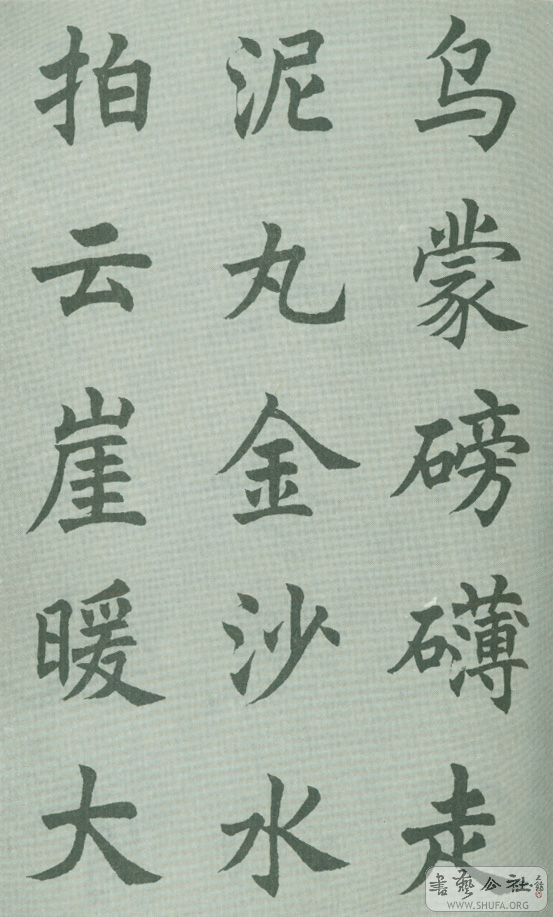 乌蒙磅礴走
泥丸金沙水
拍云崖暖大
書藝公社
WWW.SHUFA.ORG